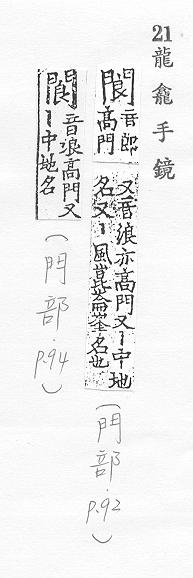 21龍龕手鏡
閬音郎高門又音浪亦高門又丨中地名又丨風崑崙峯名也
(門部.p.92)
閬音浪高門又丨中地名
(門部.p.94)